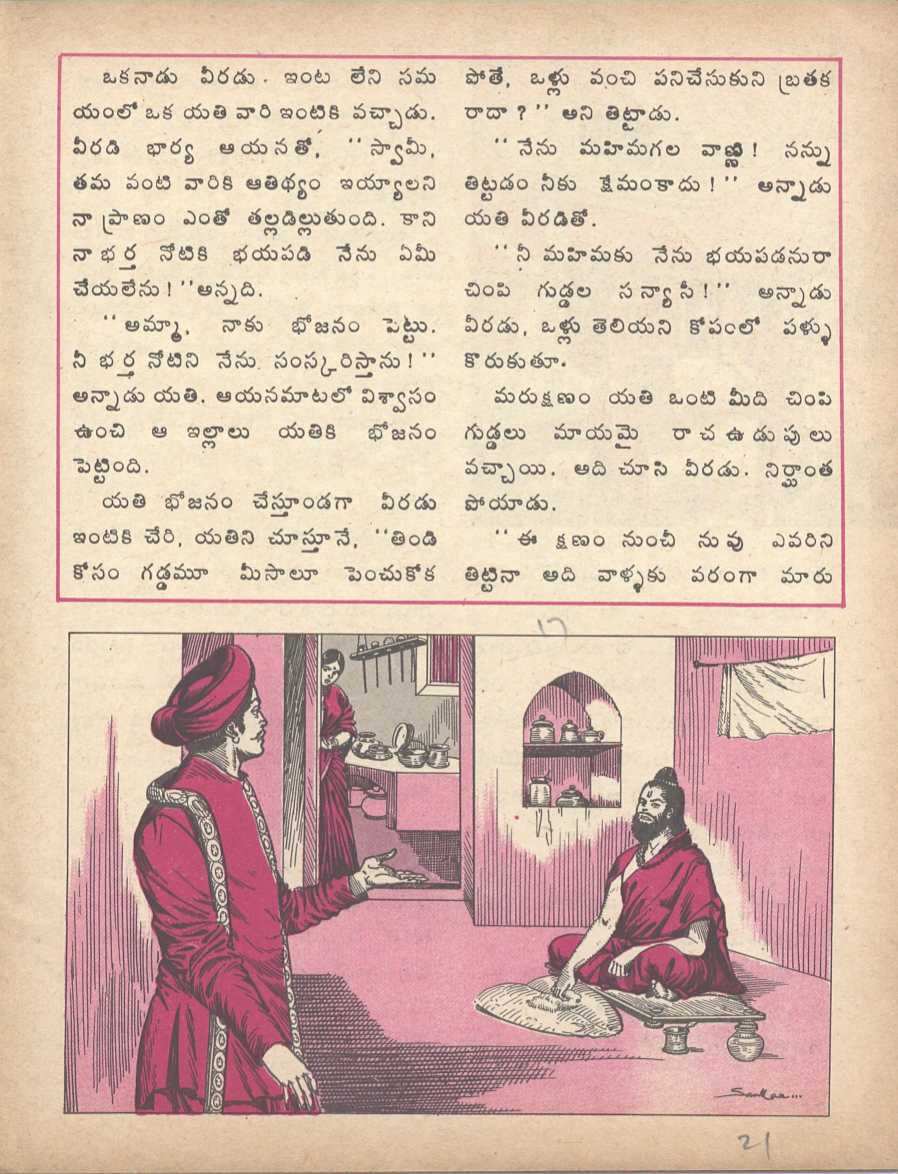 ఒకనాడు వీరడు ఇంట లేని సమ
యంలో ఒక యతి వారి ఇంటికి వచ్చాడు.
వీరడి భార్య ఆయనతో, "స్వామీ,
తమ వంటి వారికి ఆతిథ్యం ఇయ్యాలని
నా ప్రాణం ఎంతో తల్లడిల్లుతుంది. కాని
నా భర్త నోటికి భయపడి నేను ఏమీ
చేయలేను!" అన్నది.
"అమ్మా, నాకు భోజనం పెట్టు.
నీ భర్త నోటిని నేను సంస్కరిస్తాను!"
అన్నాడు యతి. ఆయనమాటలో విశ్వాసం
ఉంచి ఆ ఇల్లాలు యతికి భోజనం
పెట్టింది.
యతి భోజనం చేస్తూండగా వీరడు
ఇంటికి చేరి, యతిని చూస్తూనే, "తిండి
కోసం గడ్డమూ మీసాలూ పెంచుకోక
పోతే, ఒళ్లు వంచి పనిచేసుకుని బ్రతక
రాదా?" అని తిట్టాడు.
"నేను మహిమగల వాణ్ణి! నన్ను
తిట్టడం నీకు క్షేమంకాదు!" అన్నాడు
యతి వీరడితో.
"నీ మహిమకు నేను భయపడనురా
చింపి గుడ్డల సన్యాసీ!" అన్నాడు
వీరడు, ఒళ్లు తెలియని కోపంలో పళ్ళు
కొరుకుతూ.
మరుక్షణం యతి ఒంటి మీది చింపి
గుడ్డలు మాయమై రాచ ఉడుపులు
వచ్చాయి. అది చూసి వీరడు నిర్ఘాంత
పోయాడు.
"ఈ క్షణం నుంచీ నువు ఎవరిని
తిట్టినా అది వాళ్ళకు వరంగా మారు
Sankar...
21